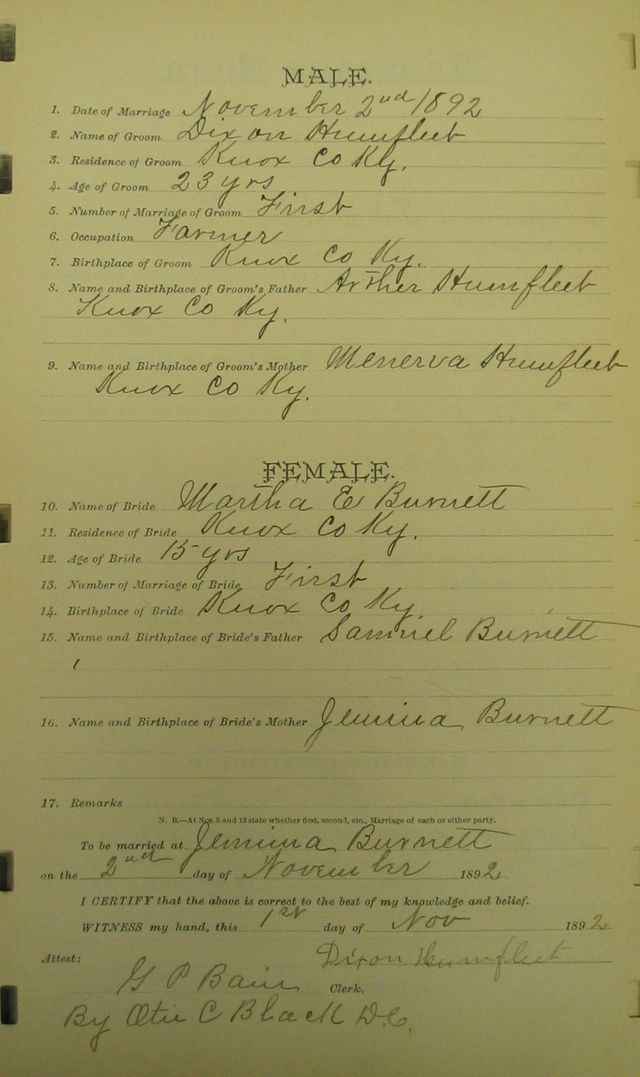 MALE.
1. Date of Marriage November 2nd 1892
2. Name of Groom Dixon Humfleet
3. Residence of Groom Knox Co Ky.
4. Age of Groom 23 yrs
5. Number of Marriage of Groom First
6. Occupation Farmer
7. Birthplace of Groom Knox Co Ky.
8. Name and Birthplace of Groom's Father Arther Humfleet
Knox Co Ky.
9. Name and Birthplace of Groom's Mother Menerva Humfleet
Knox Co Ky.
FEMALE.
10. Name of Bride Martha E Burnett
11. Residence of Bride Knox Co Ky.
12. Age of Bride 15 yrs
13. Number of Marriage of Bride First
14. Birthplace of Bride Knox Co Ky.
15. Name and Birthplace of Bride's Father Samuel Burnett
16. Name and Birthplace of Bride's Mother Jemima Burnett
17. Remarks
N. B.—At Nos. 5 and 13 state whether first, second, etc., Marriage of each or either party.
To be married at Jemima Burnett
on the 2nd day of November 1892
I CERTIFY that the above is correct to the best of my knowledge and belief.
WITNESS my hand, this 1st day of Nov 1892
Dixon Humfleet
Attest:
G P Bain Clerk.
By C Black D.C.